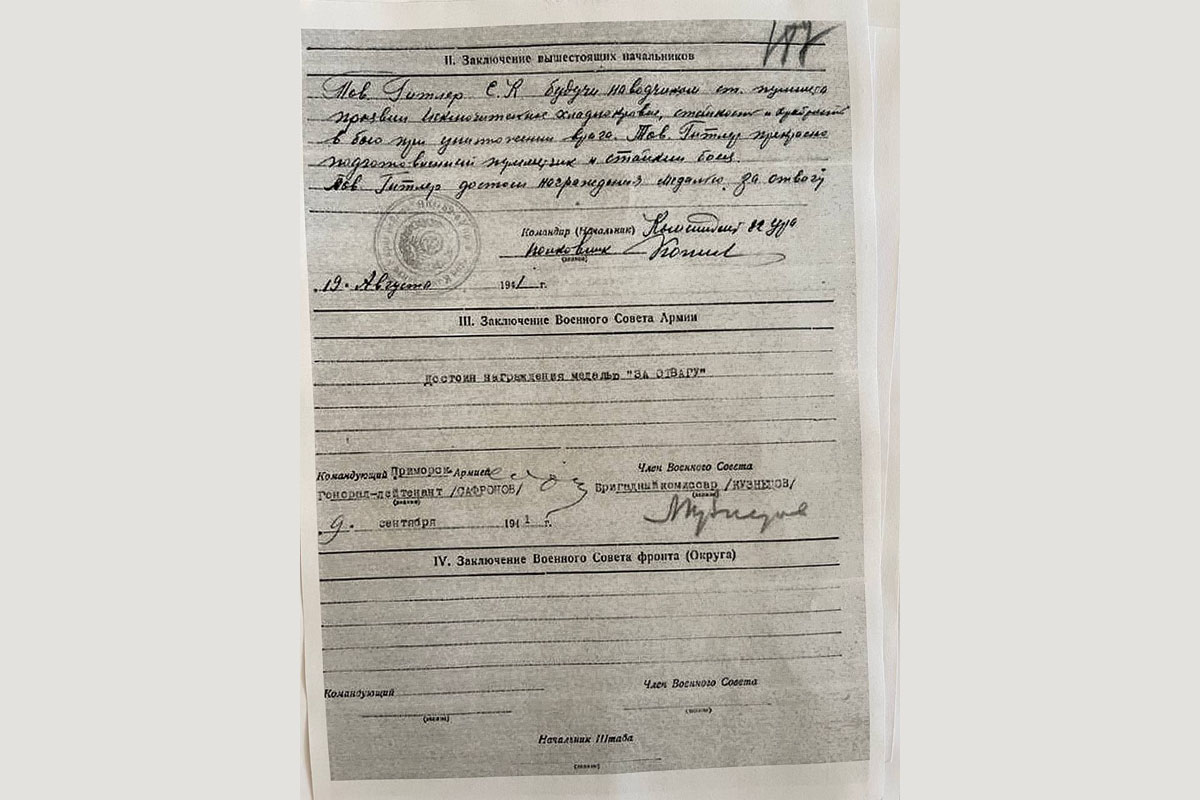 187
II. Заключение вышестоящих начальников
Тов. Гитлер С.К будучи наводчиком ст. пулемета
проявил исключительное хладнокровие, стойкость и храбрость
в бою при уничтожении врага. Тов. Гитлер прекрасно
подготовленный пулеметчик и стойкий боец.
Тов. Гитлер достоин награждения медалью за отвагу
Командир (Начальник) Комендант 82 ура
полковник
(звание)
19. Августа 1941 г.
III. Заключение Военного Совета Армии
достоин награждения медалью "ЗА ОТВАГУ"
Командующий Приморск. Армией
Член Военного Совета
Генерал-лейтенант /САФРОНОВ/
Бригадный комиссар /КУЗНЕЦОВ/
(звание)
(звание)
9. сентября 1941 г.
IV. Заключение Военного Совета фронта (Округа)
Командующий
Член Военного Совета
(звание)
(звание)
Начальник Штаба
(звание)